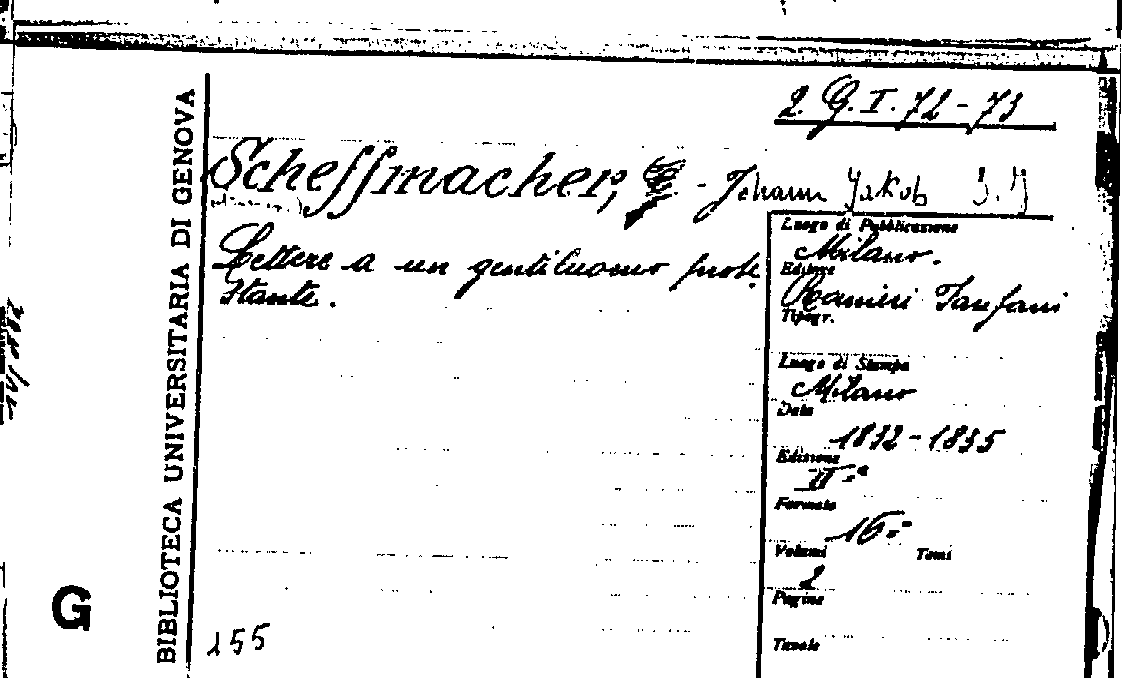 2. G. I. 72-73
Scheffmacher, - Johann Jakob S.J
Lettere a un gentiluomo prote
stante.
Luogo di Pubblicazione
Milano.
Editore
Ranieri Fanfani
Tipogr.
Luogo di Stampa
Milano
Data
1832-1835
Edizione
II-a
Formato
16-
Volumi Tomi
2
Pagine
Tavole
BIBLIOTECA UNIVERSITARIA DI GENOVA
G
155